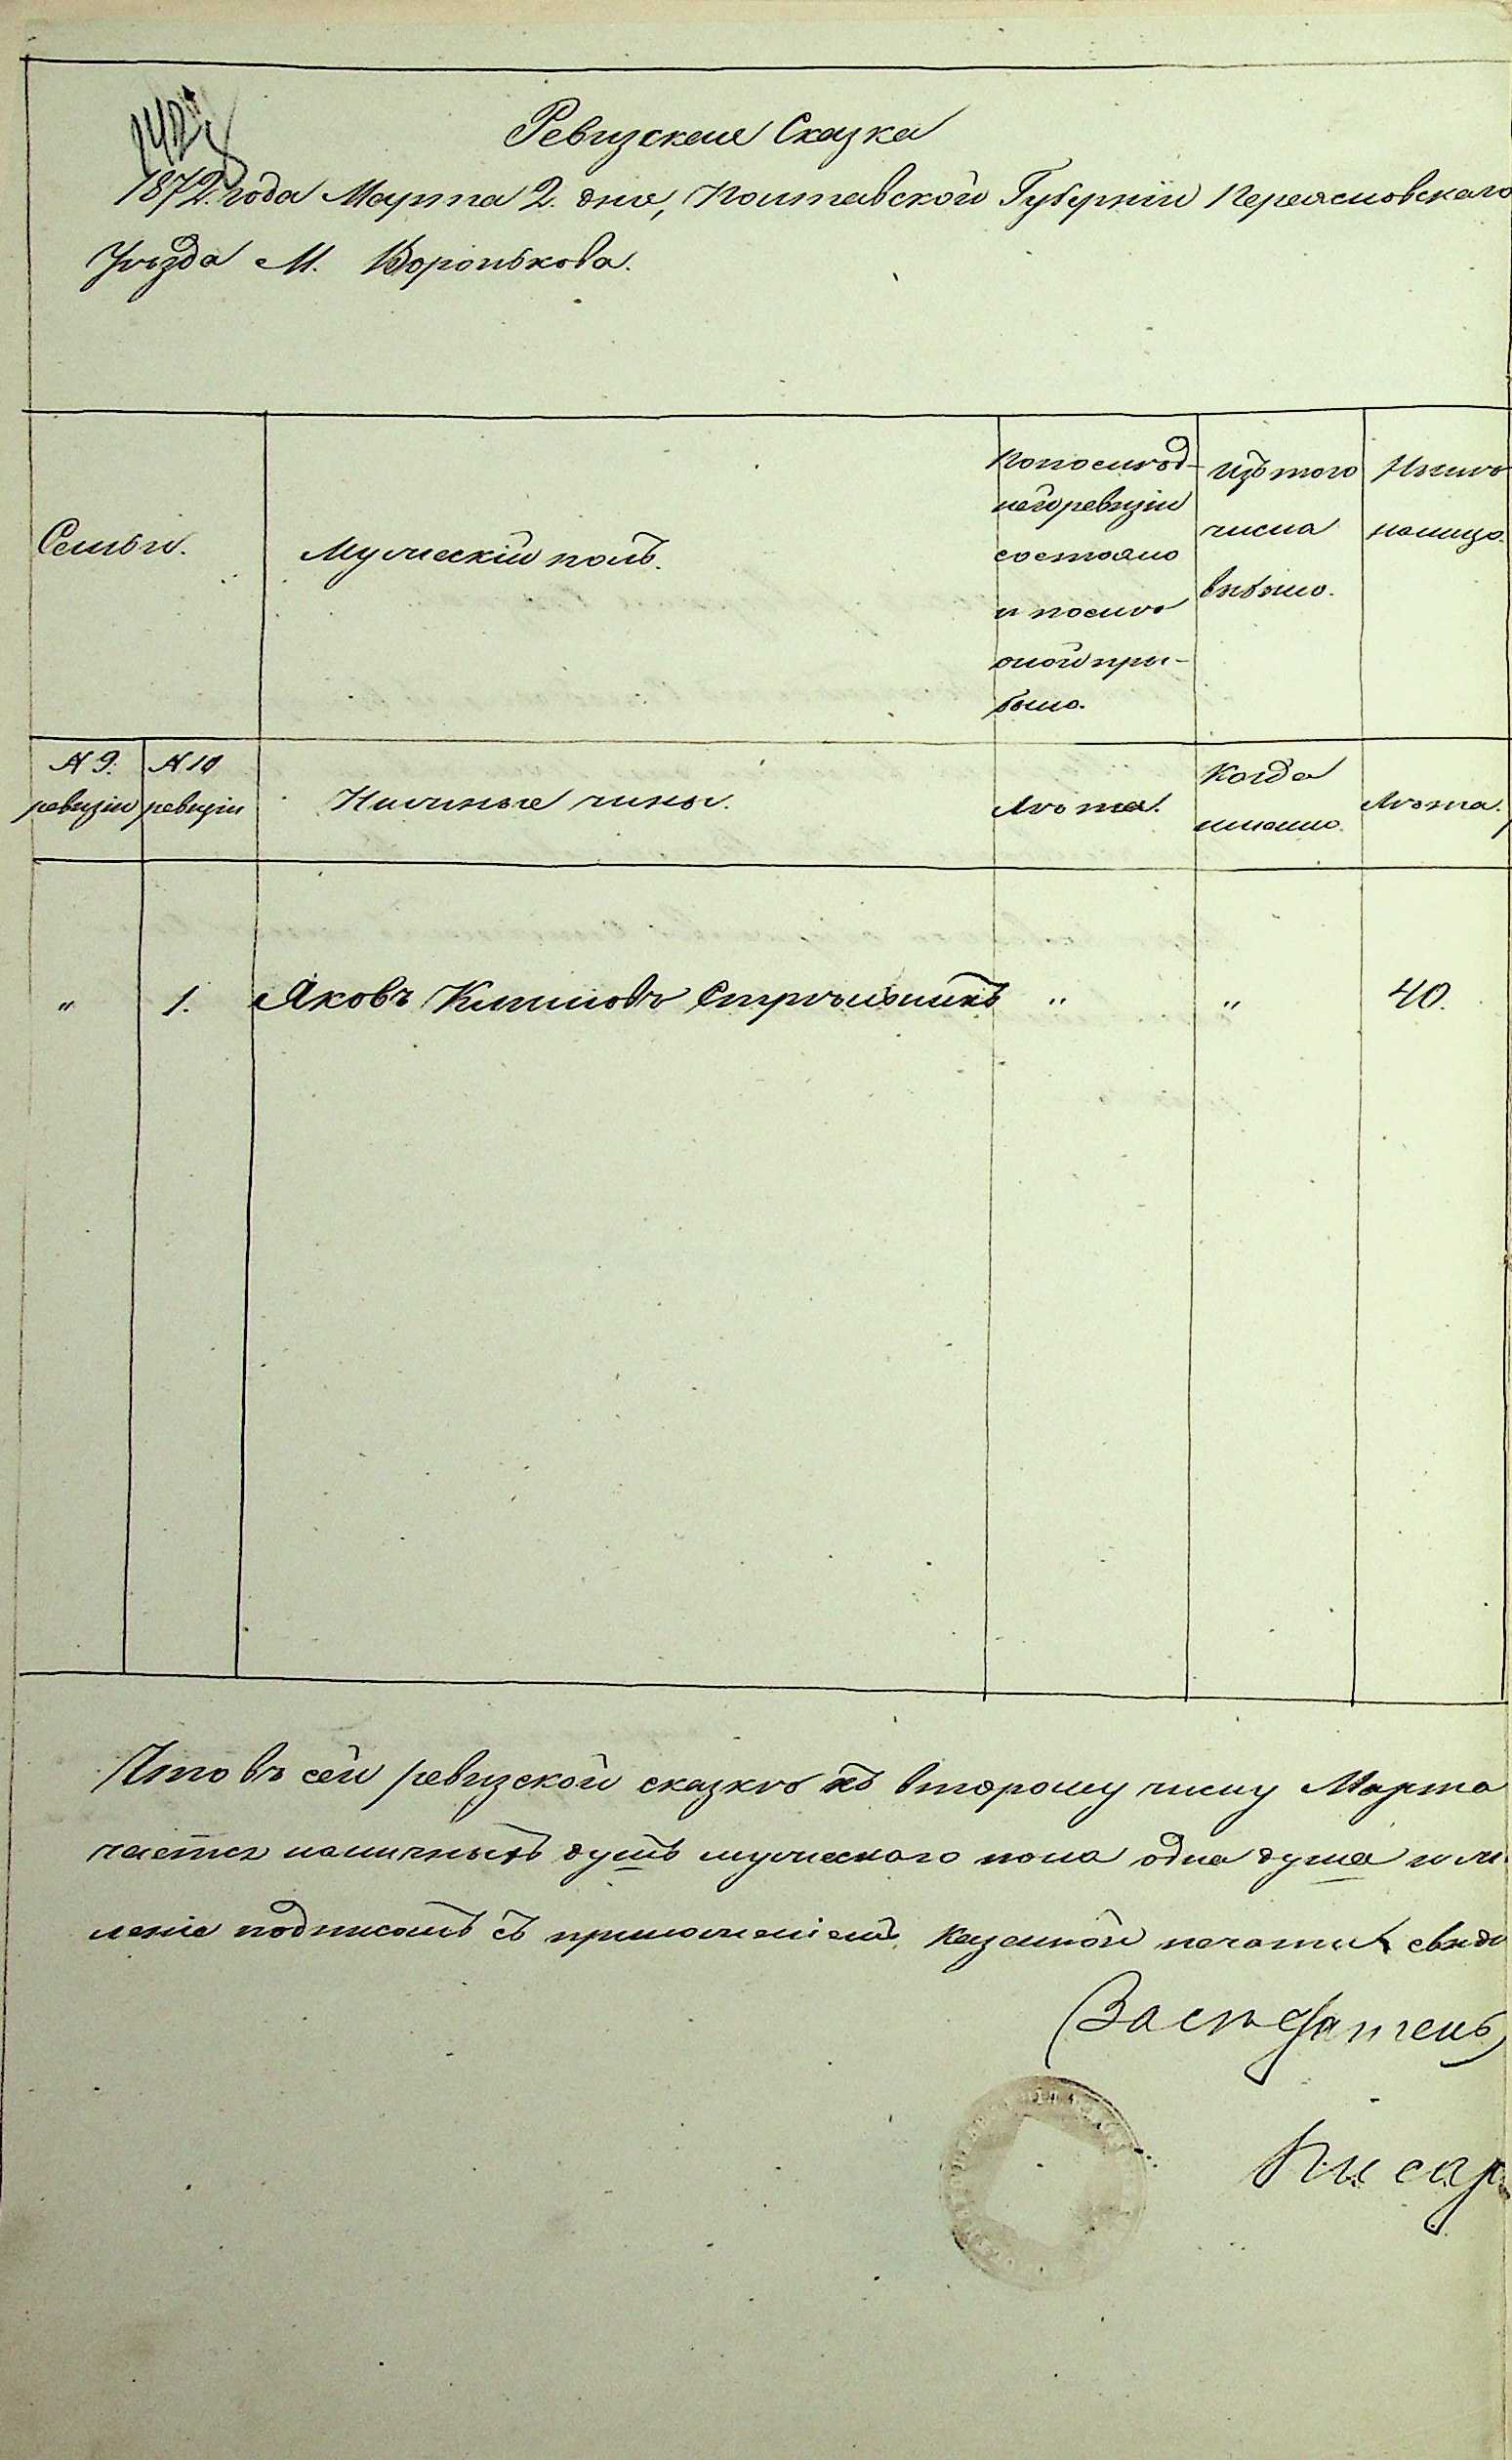 142
Ревизская Сказка
1872 года Марта 2 дня, Полтавской Губернии Переясловскаго
Уѣзда М. Воронькова.
Семьи.
Мужескій полъ.
По послѣд-
ней ревизіи
состояло
и послѣ
оной при-
было.
Изъ того
числа
выбыло.
Нынѣ
на лицо.
№ 9.
ревизіи
№ 10
ревизіи
Нижные чины.
Лѣта.
Когда
именно.
Лѣта.
„ 1. Яковъ Климовъ Стрѣльникъ „ „ 40.
Что въ сей ревизской сказкѣ къ второму числу Марта
чается наличныхъ душъ мужескаго пола одна душа и
ленія подписомъ съ приложеніемъ казенной печати свидѣ
Засѣдатель
Писар